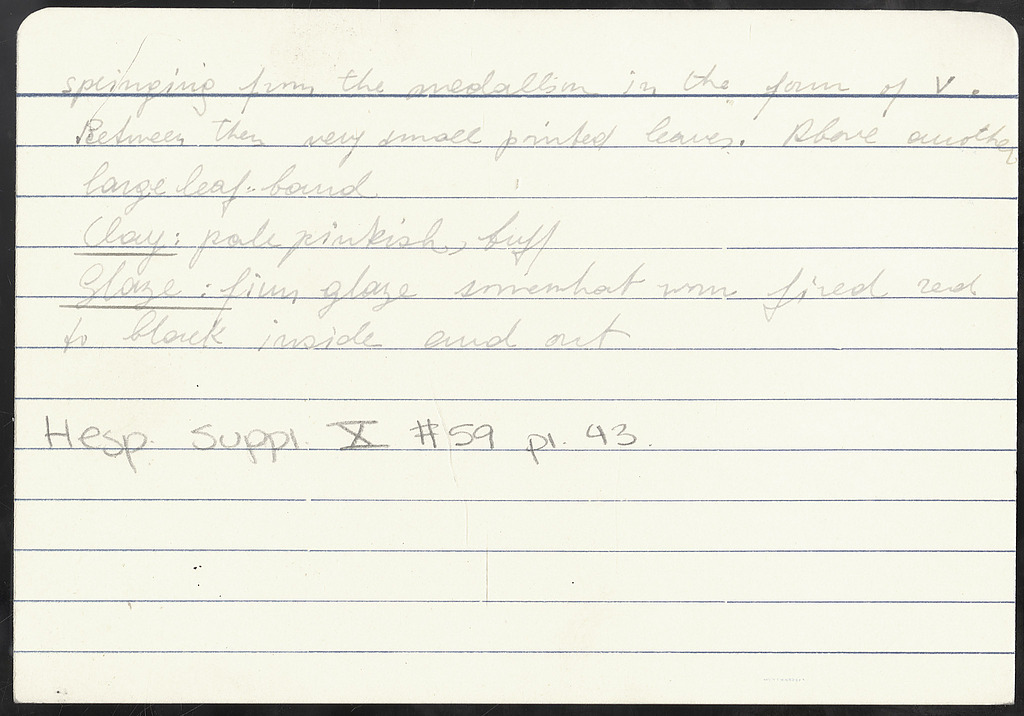 springing from the medallion in the form of V.
Between them very small pointed leaves. Above another
large leaf-band
Clay: pale pinkish, buff
Glaze: firm glaze somewhat worn fired red
to black inside and out
Hesp. Suppl. X #59 pl. 43.